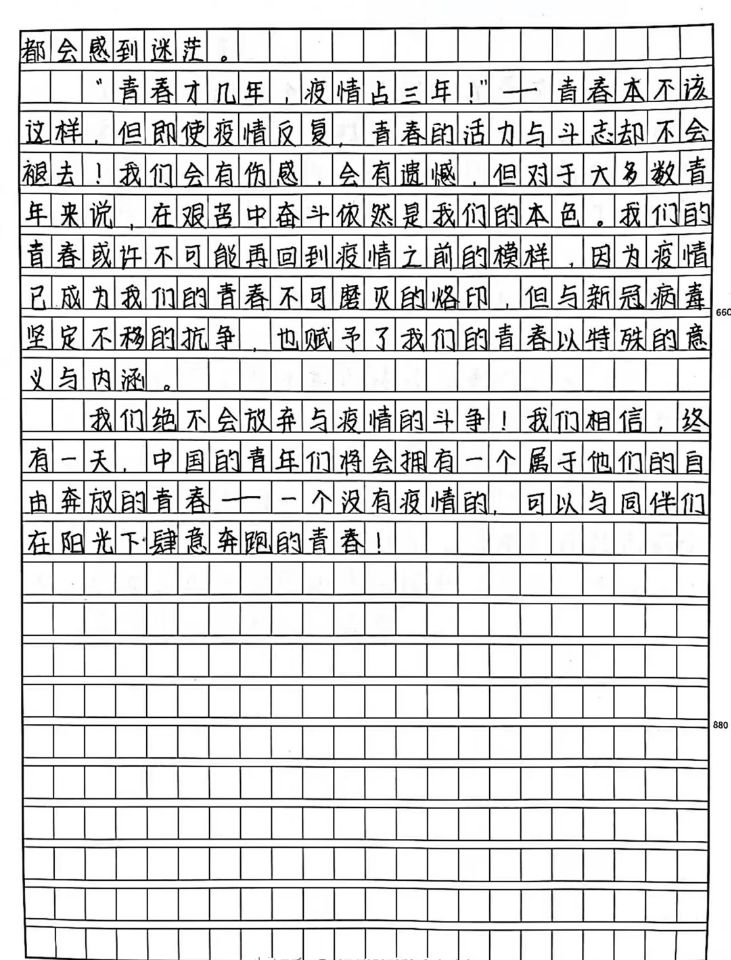 都会感到迷茫。
“青春才几年，疫情占三年！”——青春本不该
这样，但即使疫情反复，青春的活力与斗志却不会
褪去！我们会有伤感，会有遗憾，但对于大多数青
年来说，在艰苦中奋斗依然是我们的本色。我们的
青春或许不可能再回到疫情之前的模样，因为疫情
已成为我们的青春不可磨灭的烙印，但与新冠病毒
660
坚定不移的抗争，也赋予了我们的青春以特殊的意
义与内涵。
我们绝不会放弃与疫情的斗争！我们相信，终
有一天，中国的青年们将会拥有一个属于他们的自
由奔放的青春——一个没有疫情的，可以与同伴们
在阳光下肆意奔跑的青春！
880